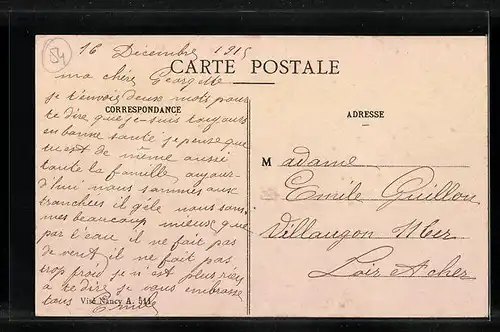 54
16 Décembre 1915
CARTE POSTALE
ma chère Georgette
je t'envoi deux mots pour
CORRESPONDANCE
te dire que je suis toujours
en bonne santé je pense que
tu est de même aussi
toute la famille aujour
d'hui nous sommes aux
tranchées il gèle nous som
mes beaucoup mieux que
par l'eau il ne fait pas
de vent il ne fait pas
trop froid je n'est plus rien
a te dire je vous embrasse
tous Emile
Visé Nancy A. 511
ADRESSE
M adame
Emile Guillon
Villaugon Mer
Loir et cher